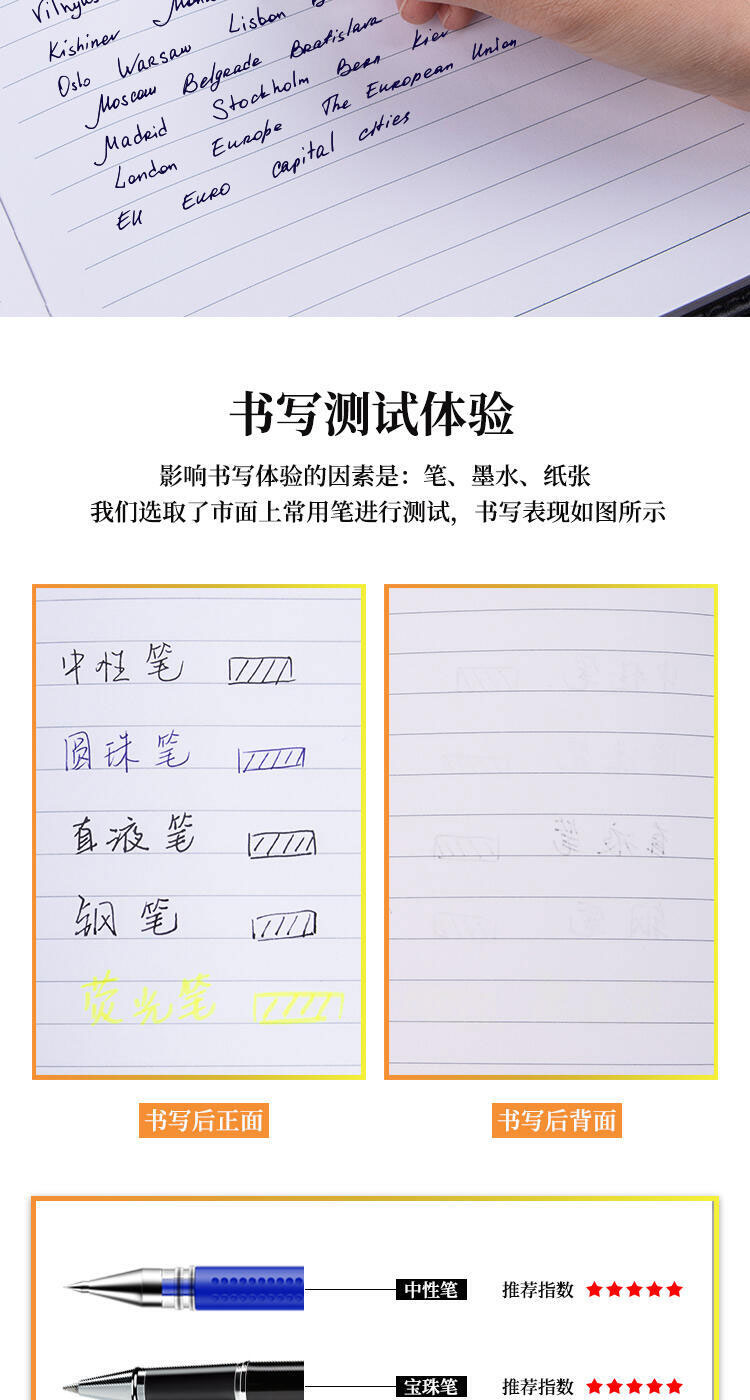 Vilnyus
Kishiner
Oslo Warsaw Lisbon
Moscow Belgrade Bratislava
Madrid Stockholm Bern Kiev
London Europe The European Union
EU Euro capital cities
书写测试体验
影响书写体验的因素是：笔、墨水、纸张
我们选取了市面上常用笔进行测试，书写表现如图所示
中性笔
圆珠笔
直液笔
钢笔
荧光笔
书写后正面 书写后背面
中性笔 推荐指数 ★★★★★
宝珠笔 推荐指数 ★★★★★